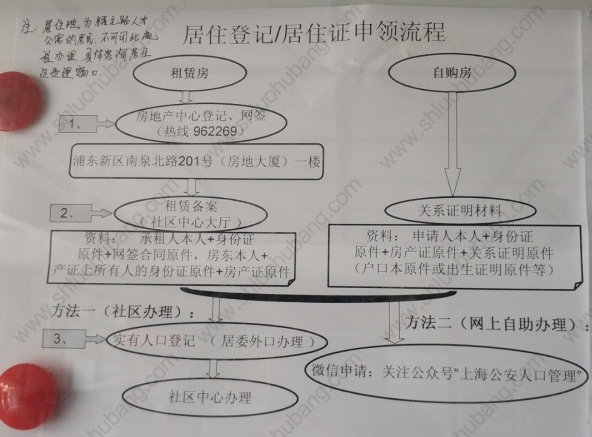 注：居住地为耀之路人才
公寓的居民，不可用此流
程办理，具体咨询居住
居住登记/居住证申领流程
租赁房
自购房
1、
房地产中心登记、网签
（热线 962269）
浦东新区南泉北路201号（房地大厦）一楼
2、
租赁备案
（社区中心大厅）
关系证明材料
资料： 承租人本人+身份证
原件+网签合同原件，房东本人+
产证上所有人的身份证原件+房产证原件
资料： 申请人本人+身份证
原件+房产证原件+关系证明原件
（户口本原件或出生证明原件等）
方法一（社区办理）：
方法二（网上自助办理）：
3、
实有人口登记 （ 居委外口办理 ）
社区中心办理
微信申请：关注公众号“上海公安人口管理”
www.shluohubang.com